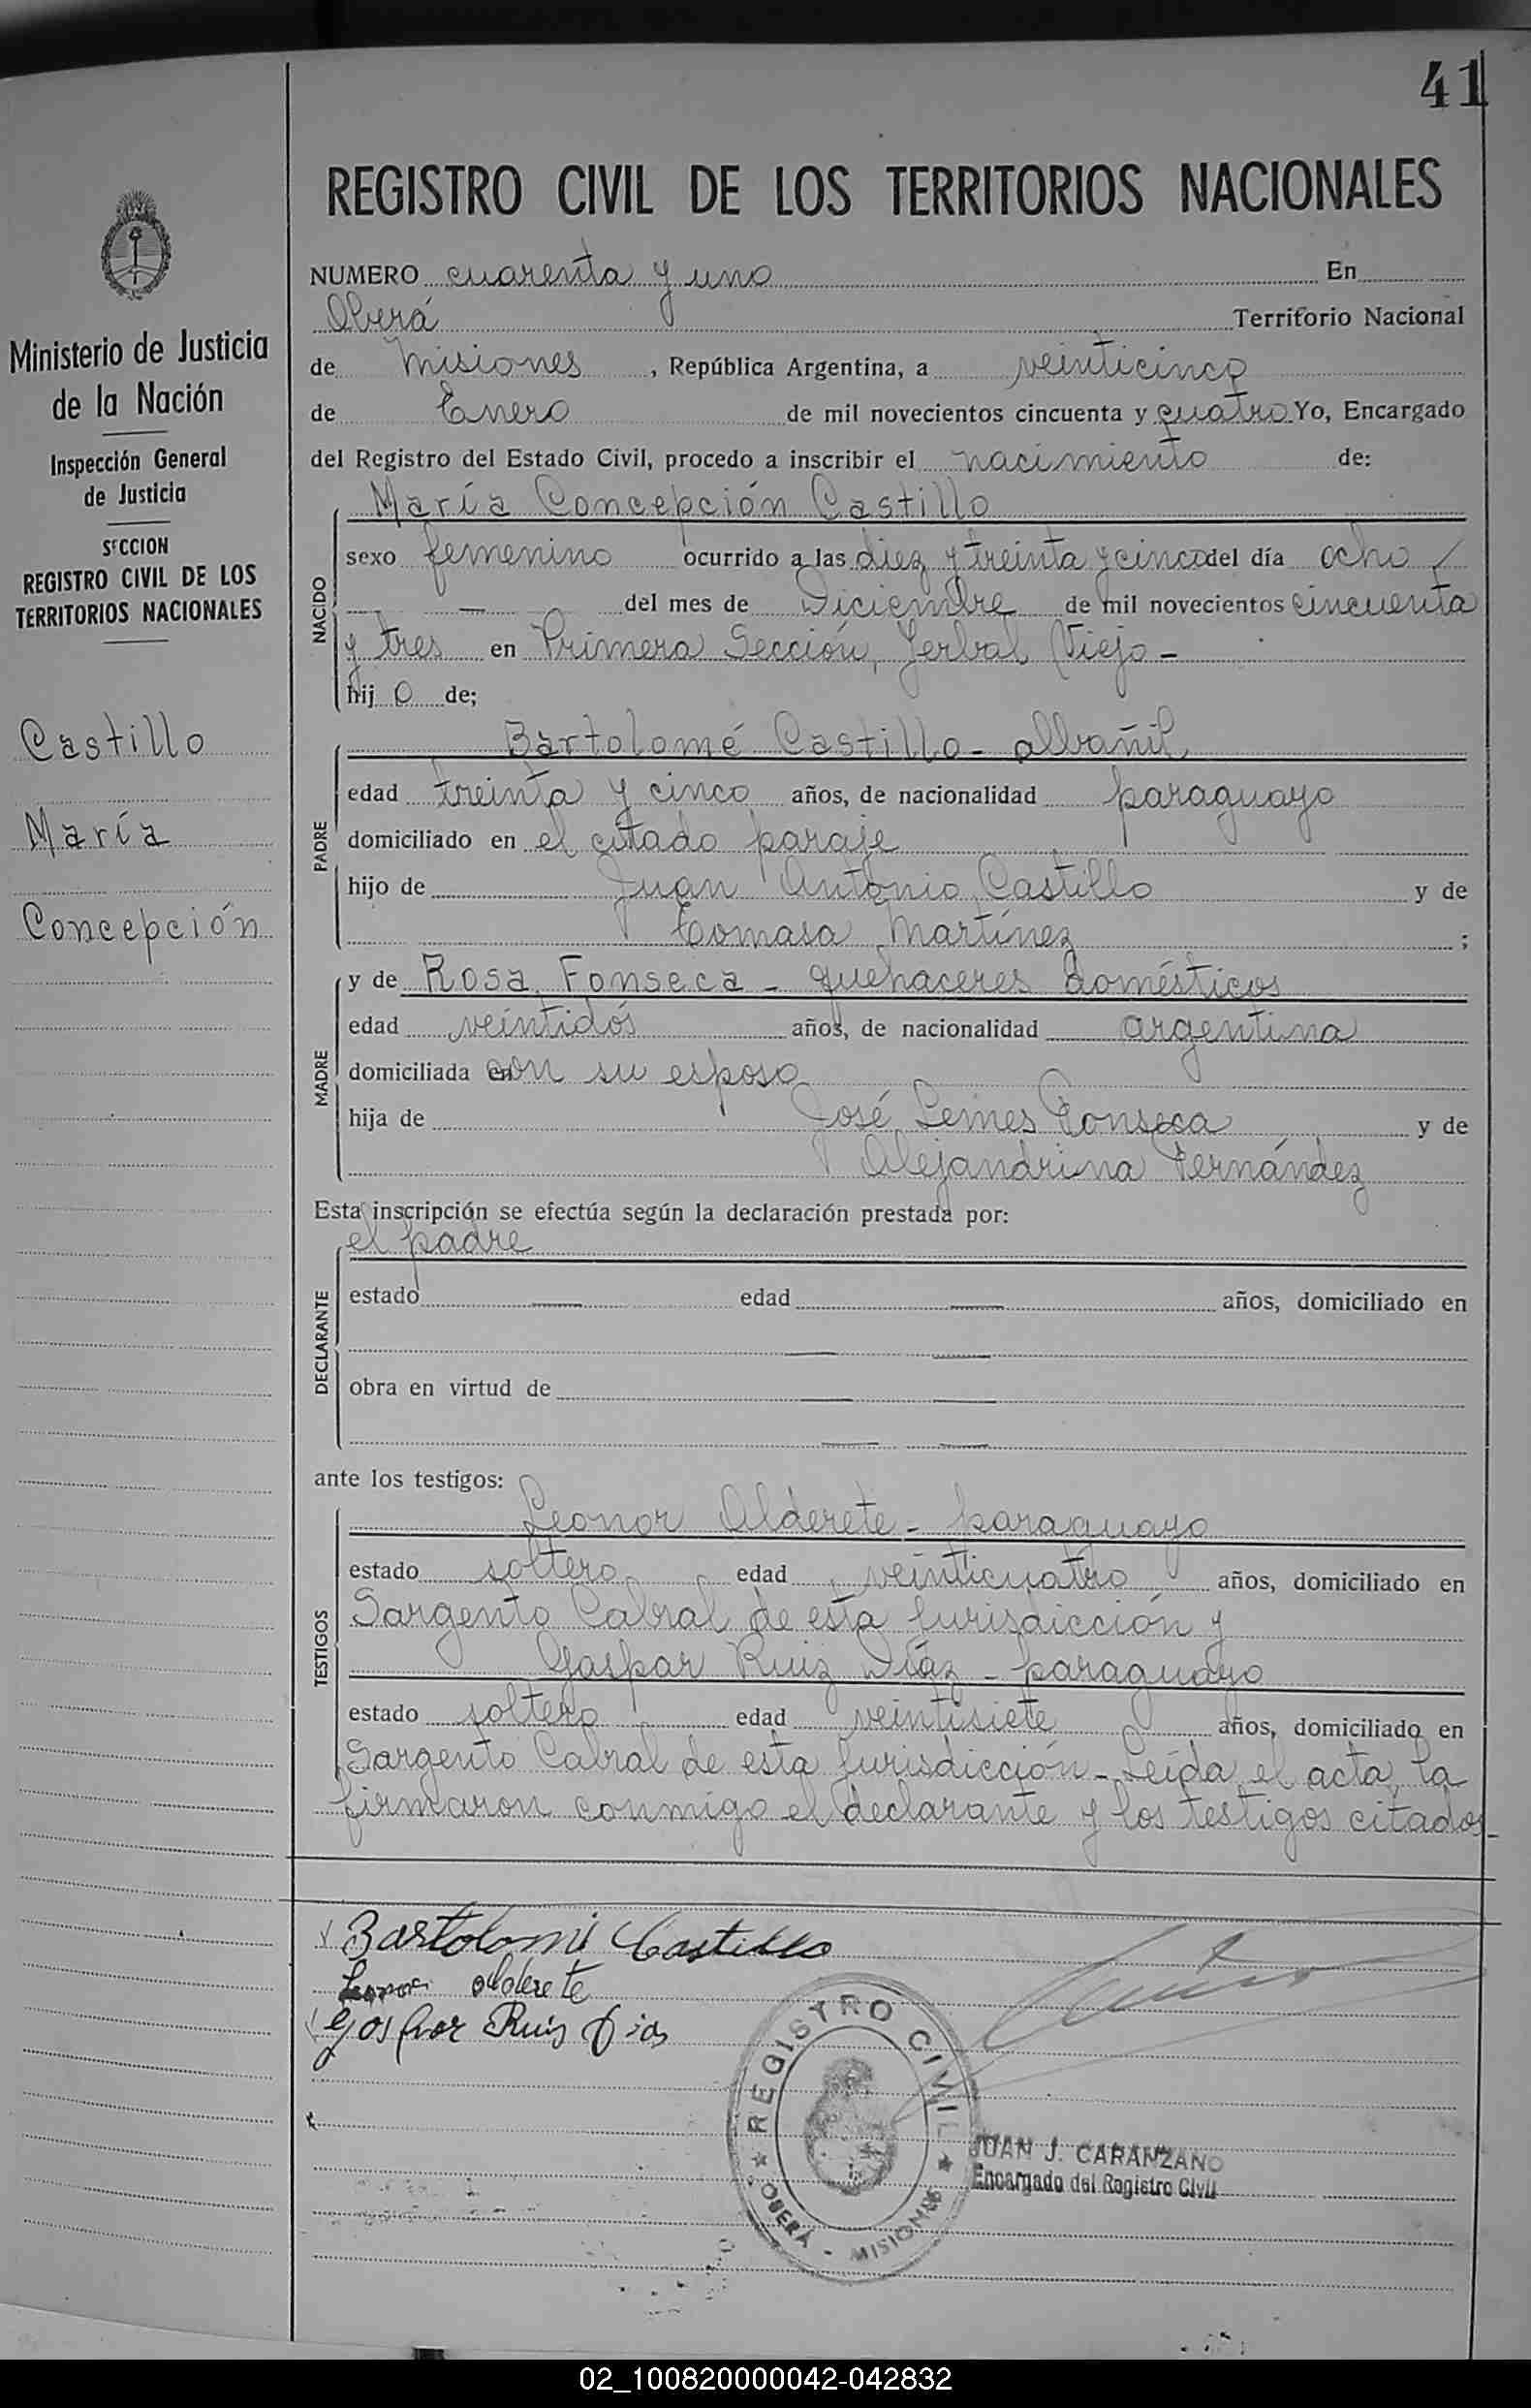 41
REGISTRO CIVIL DE LOS TERRITORIOS NACIONALES
Ministerio de Justicia
de la Nación
Inspección General
de Justicia
SECCION
REGISTRO CIVIL DE LOS
TERRITORIOS NACIONALES
Castillo
María
Concepción
NUMERO cuarenta y uno En
Oberá Territorio Nacional
de Misiones, República Argentina, a veinticinco
de Enero de mil novecientos cincuenta y cuatro Yo, Encargado
del Registro del Estado Civil, procedo a inscribir el nacimiento de:
NACIDO
María Concepción Castillo
sexo femenino ocurrido a las diez y treinta y cinco del día ocho
— del mes de Diciembre de mil novecientos cincuenta
y tres en Primera Sección, Yerbal Viejo -
hij o de;
PADRE
Bartolomé Castillo - albañil
edad treinta y cinco años, de nacionalidad paraguayo
domiciliado en el citado paraje
hijo de Juan Antonio Castillo y de
Tomasa Martínez ;
MADRE
y de Rosa Fonseca - quehaceres domésticos
edad veintidós años, de nacionalidad argentina
domiciliada en con su esposo
hija de José Lemes Fonseca y de
Alejandrina Fernández
Esta inscripción se efectúa según la declaración prestada por:
DECLARANTE
el padre
estado — edad — años, domiciliado en
— —
obra en virtud de — —
— —
ante los testigos:
TESTIGOS
Leonor Alderete - paraguayo
estado soltero edad veinticuatro años, domiciliado en
Sargento Cabral de esta Jurisdicción y
Gaspar Ruiz Díaz - paraguayo
estado soltero edad veintisiete años, domiciliado en
Sargento Cabral de esta Jurisdicción - Leída el acta, la
firmaron conmigo el declarante y los testigos citados -
Bartolomé Castillo
Leonor Alderete
Gaspar Ruiz Dias
REGISTRO CIVIL
OBERÁ - MISIONES
JUAN J. CARANZANO
Encargado del Registro Civil
02_100820000042-042832